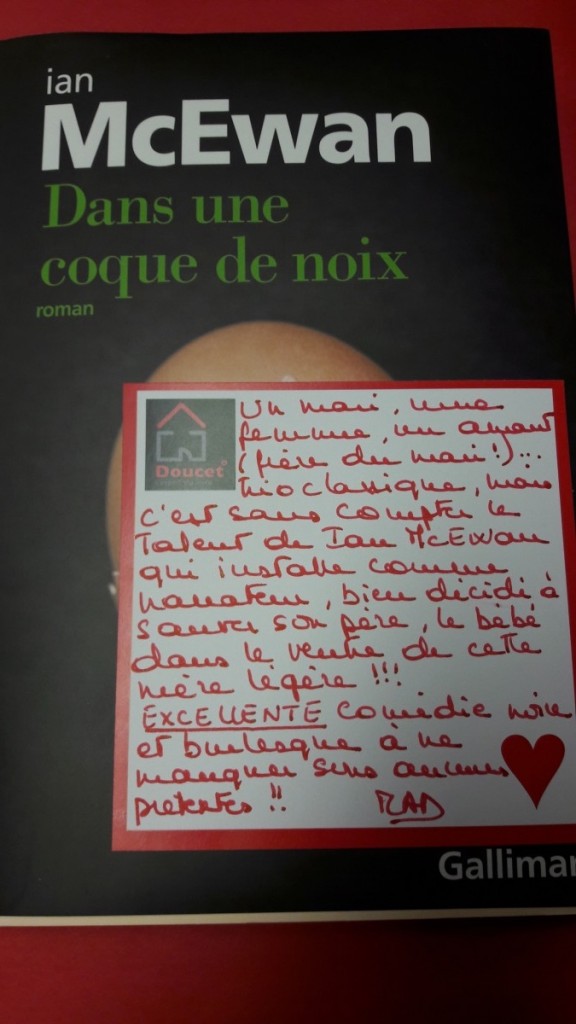 ian
McEwan
Dans une
coque de noix
roman
Doucet
Un mari, une
femme, un amant
(frère du mari !)...
trio classique, mais
c'est sans compter le
talent de Ian McEwan
qui installe comme
narrateur, bien décidé à
sauver son père, le bébé
dans le ventre de cette
mère légère !!!
EXCELLENTE comédie noire
et burlesque à ne
manquer sous aucuns
prétextes !!
MAD
Gallimar